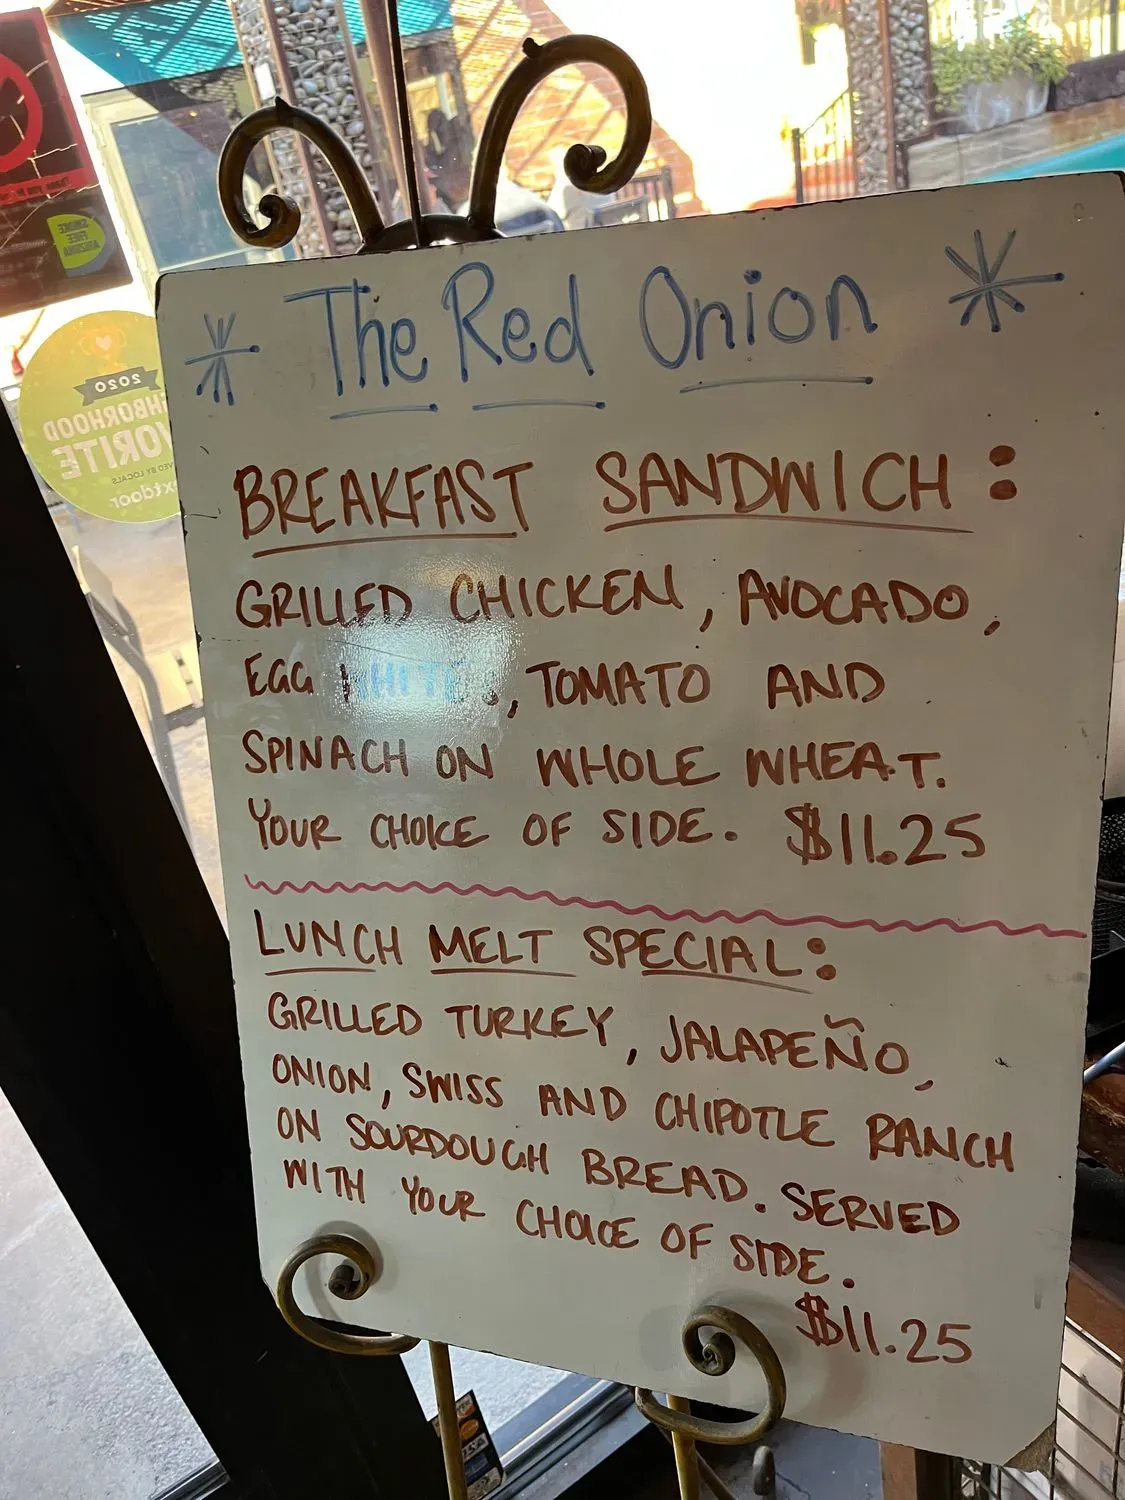 The Red Onion
BREAKFAST SANDWICH:
GRILLED CHICKEN, AVOCADO,
EGG WHITE, TOMATO AND
SPINACH ON WHOLE WHEAT.
YOUR CHOICE OF SIDE. $11.25
LUNCH MELT SPECIAL:
GRILLED TURKEY, JALAPEÑO,
ONION, SWISS AND CHIPOTLE RANCH
ON SOURDOUGH BREAD. SERVED
WITH YOUR CHOICE OF SIDE.
$11.25
SMOKE
FREE
ARIZONA
2020
HBORHOOD
VORITE
VED BY LOCALS
xtdoor
VISA